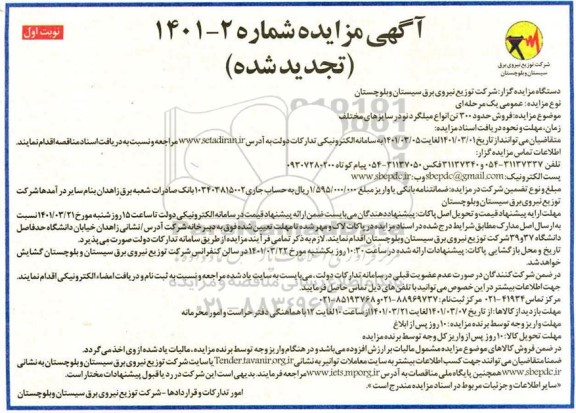 نوبت اول
آگهی مزایده شماره ۲-۱۴۰۱
(تجدید شده)
شرکت توزیع نیروی برق
سیستان و بلوچستان
دستگاه مزایده گزار: شرکت توزیع نیروی برق سیستان و بلوچستان
نوع مزایده: عمومی یک مرحله ای
موضوع مزایده: فروش حدود ۳۰۰ تن انواع میلگرد نو در سایزهای مختلف
زمان، مهلت و نحوه دریافت اسناد مزایده:
متقاضیان می توانند از تاریخ ۱۴۰۱/۰۳/۰۱ لغایت ۱۴۰۱/۰۳/۰۵ به سامانه الکترونیکی تدارکات دولت به آدرس www.setadiran.ir مراجعه و نسبت به دریافت اسناد مناقصه اقدام نمایند.
اطلاعات تماس مزایده گزار:
تلفن ۳۱۱۳۷۳۳۷-۰۵۴ و ۳۱۱۳۷۳۴۰ فکس ۳۱۱۳۷۰۵۰-۰۵۴ پیام کوتاه ۰۹۳۰۷۲۸۰۲۰۰
پست الکترونیک: sbepdc@gmail.com وب: www.sbepdc.ir
مبلغ و نوع تضمین شرکت در مزایده: ضمانتنامه بانکی یا واریز مبلغ ۱/۵۹۵/۰۰۰/۰۰۰ ریال به حساب جاری ۰۱۰۳۴۰۳۸۱۵۰۰۲ بانک صادرات شعبه برق زاهدان بنام سایر درآمدها شرکت
توزیع نیروی برق سیستان و بلوچستان
مهلت ارایه پیشنهاد قیمت و تحویل اصل پاکات: پیشنهاد دهندگان می بایست ضمن ارائه پیشنهاد قیمت در سامانه الکترونیکی دولت تا ساعت ۱۵ روز شنبه مورخ ۱۴۰۱/۰۳/۲۱ نسبت
به ارسال اصل مدارک مطابق شرایط درج شده در اسناد مزایده در پاکات لاک و مهر شده تا مهلت تعیین شده فوق به دبیرخانه شرکت آدرس: نشانی زاهدان خیابان دانشگاه حدفاصل
دانشگاه ۳۷ و ۳۹ شرکت توزیع نیروی برق سیستان و بلوچستان اقدام نمایند. لازم به ذکر تمامی فرآیند مزایده از طریق سامانه تدارکات دولت صورت می پذیرد.
تاریخ و محل بازگشایی پاکات: پیشنهادات ارائه شده در ساعت ۱۰:۳۰ روز یکشنبه مورخ ۱۴۰۱/۰۳/۲۲ در سالن کنفرانس شرکت توزیع نیروی برق سیستان و بلوچستان گشایش
خواهد شد.
در ضمن شرکت کنندگان در صورت عدم عضویت قبلی در سامانه تدارکات دولت، می بایست به سایت یاد شده مراجعه و نسبت به ثبت نام و دریافت امضاء الکترونیکی اقدام نمایند.
جهت اطلاعات بیشتر در این خصوص می توانید با تلفن های ذیل تماس حاصل فرمایید.
مرکز تماس ۴۱۹۳۴-۰۲۱ مرکز ثبت نام: ۸۸۹۶۹۷۳۷-۰۲۱ و ۸۵۱۹۳۷۶۸-۰۲۱
مهلت بازدید از کالاها: از تاریخ ۱۴۰۱/۰۳/۰۷ لغایت ۱۴۰۱/۰۳/۲۱ از ساعت ۱۰ لغایت ۱۲ با هماهنگی دفتر حراست و امور محرمانه
مهلت واریز وجه توسط برنده مزایده: ۱۰ روز پس از ابلاغ
مهلت تحویل کالا: ۱۰ روز پس از واریز کل وجه توسط برنده مزایده.
در ضمن فروش کالاهای موضوع مزایده مشمول مالیات بر ارزش افزوده می باشد و در هنگام واریز وجه توسط برنده مزایده، مالیات یاد شده از وی اخذ می گردد.
ضمنا متقاضیان می توانند جهت کسب اطلاعات بیشتر به سایت معاملات توانیر به نشانی Tender.tavanir.org.ir یا سایت شرکت توزیع نیروی برق سیستان و بلوچستان به نشانی
www.sbepdc.ir همچنین پایگاه ملی مناقصات به آدرس www.iets.mporg.ir مراجعه فرمایند. بدیهی است این شرکت در رد یا قبول پیشنهادات مختار است.
«سایر اطلاعات و جزئیات مربوط در اسناد مزایده مندرج است».
امور تدارکات و قراردادها - شرکت توزیع نیروی برق سیستان و بلوچستان